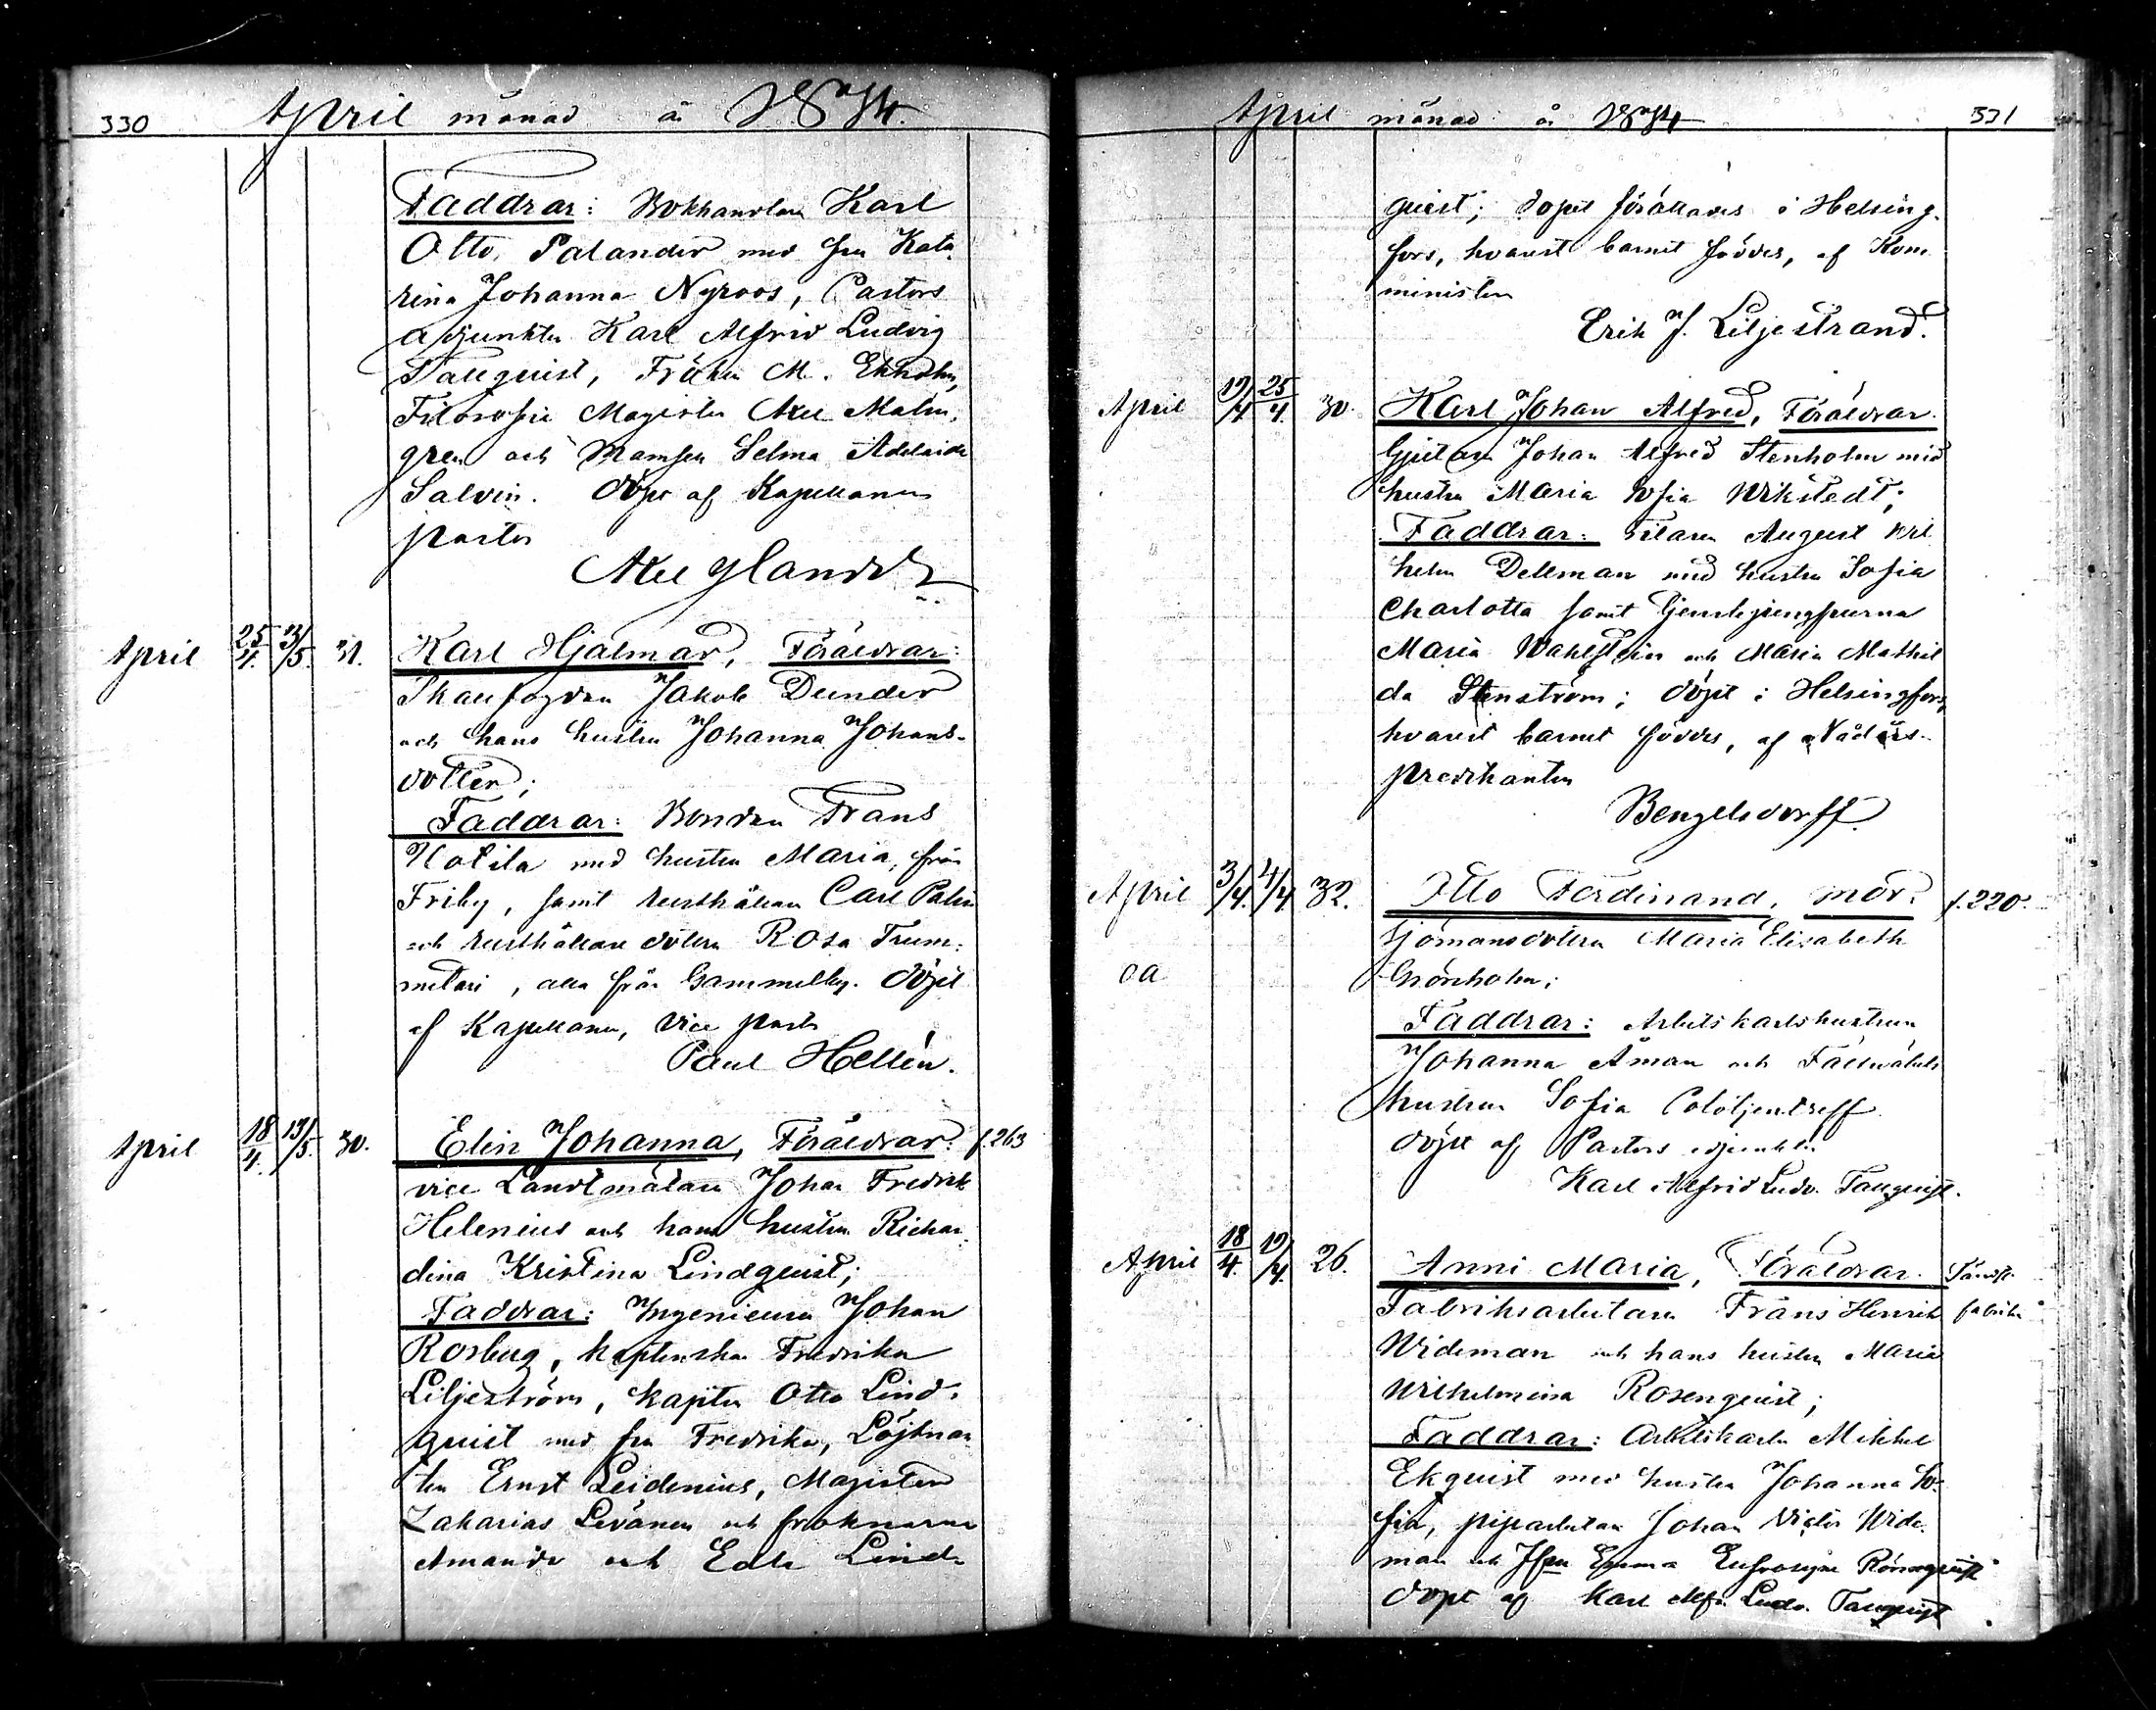 330 April månad å 1874.
Faddrar: Bokhandlare Karl
Otto Palander med fru Kata-
rina Johanna Nyroos, Pastors
adjunkten Karl Alfrid Ludvig
Tallquist, Fröken M. Ekholm,
Filosofie Magister Axel Malm-
gren och Mamsell Selma Adelaide
Salvin. döpt af Kapellanen
pastor
Axel
April 25/4. 3/5. 31. Karl Hjalmar, Föräldrar:
Jakob Dunder
och hans hustru Johanna Johans-
dotter;
Faddrar: Bonden Frans
med hustru Maria, från
Friby, samt rusthållaren Carl Palin
och rusthållare dottern Rosa Trum-
metari, alla från Gammelby. döpt
af Kapellanen, vice pastor
Paul Hellén.
April 18/4. 13/5. 30. Elin Johanna, Föräldrar: f. 263
vice Landtmätare Johan Fredrik
Helenius och hans hustru Richar-
dina Kristina Lindquist;
Faddrar: Ingenieuren Johan
Rosberg, kaptenskan Fredrika
Liljeström, kapten Otto Lind-
quist med fru Fredrika, Löjtnan-
ten Ernst Leidenius, Magister
Zakarias Levänen och fröknarna
Amanda och Edla Lind-
April månad å 1874 331
quist; dopet förättades i Helsing-
fors, hvarest barnet föddes, af Kom-
ministern
Erik J. Liljestrand.
April 19/4 25/4. 30. Karl Johan Alfred, Föräldrar
Gjutaren Johan Alfred Stenholm med
hustru Maria Sofia Wikstedt;
Faddrar: Filaren August Wil-
helm Dellman med hustru Sofia
Charlotta samt
Maria Wahlsten och Maria Mathil-
da Stenström; döpt i Helsingfors,
hvarest barnet föddes, af Nådårs-
predikanten
Bengelsdorff.
April 3/4. 4/4. 32. Otto Ferdinand, mor: f. 220.
Sjömansdottern Maria Elisabeth
oa Grönholm;
Faddrar: Arbetskarlshustrun
Johanna Åman och Fältväbels
hustrun Sofia
döpt af Pastors adjunkten
Karl Alfrid Ludv. Tallquist.
April 18/4. 19/4. 26. Anni Maria, Föräldrar.
Fabriksarbetaren Frans Henrik fabrik
Wideman och hans hustru Maria
Wilhelmina Rosenquist;
Faddrar: Arbetskarlen Mikkel
Ekquist med hustru Johanna So-
fia, piparbetaren Johan Victor Wide-
man och Emma Eufrosyne
döpt af Karl Alfr. Ludv. Tallquist